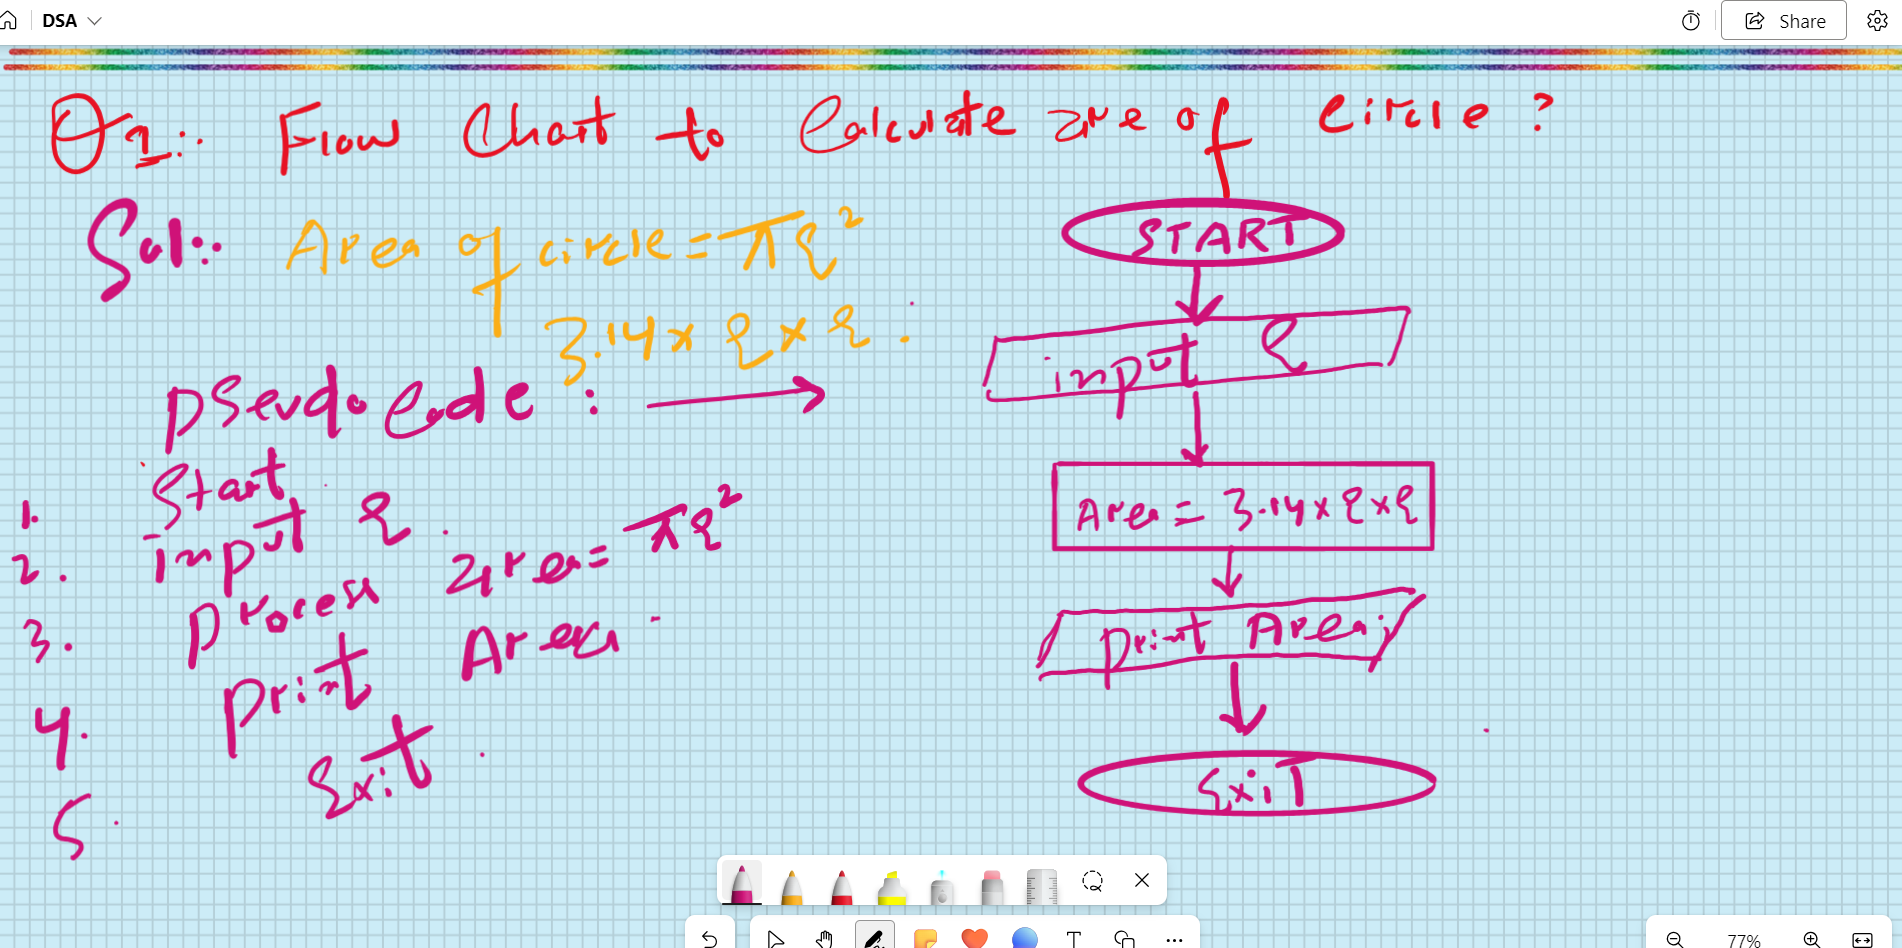 DSA
Share
Q1:. Flow Chart to Calculate are of Circle ?
Sol:. Area of circle = πr²
3.14 x r x r .
pseudo Code : →
1. Start
2. input r .
3. process area = πr²
4. print Area
5. Exit .
START
input r
Area = 3.14 x r x r
print Area;
ExiT
77%